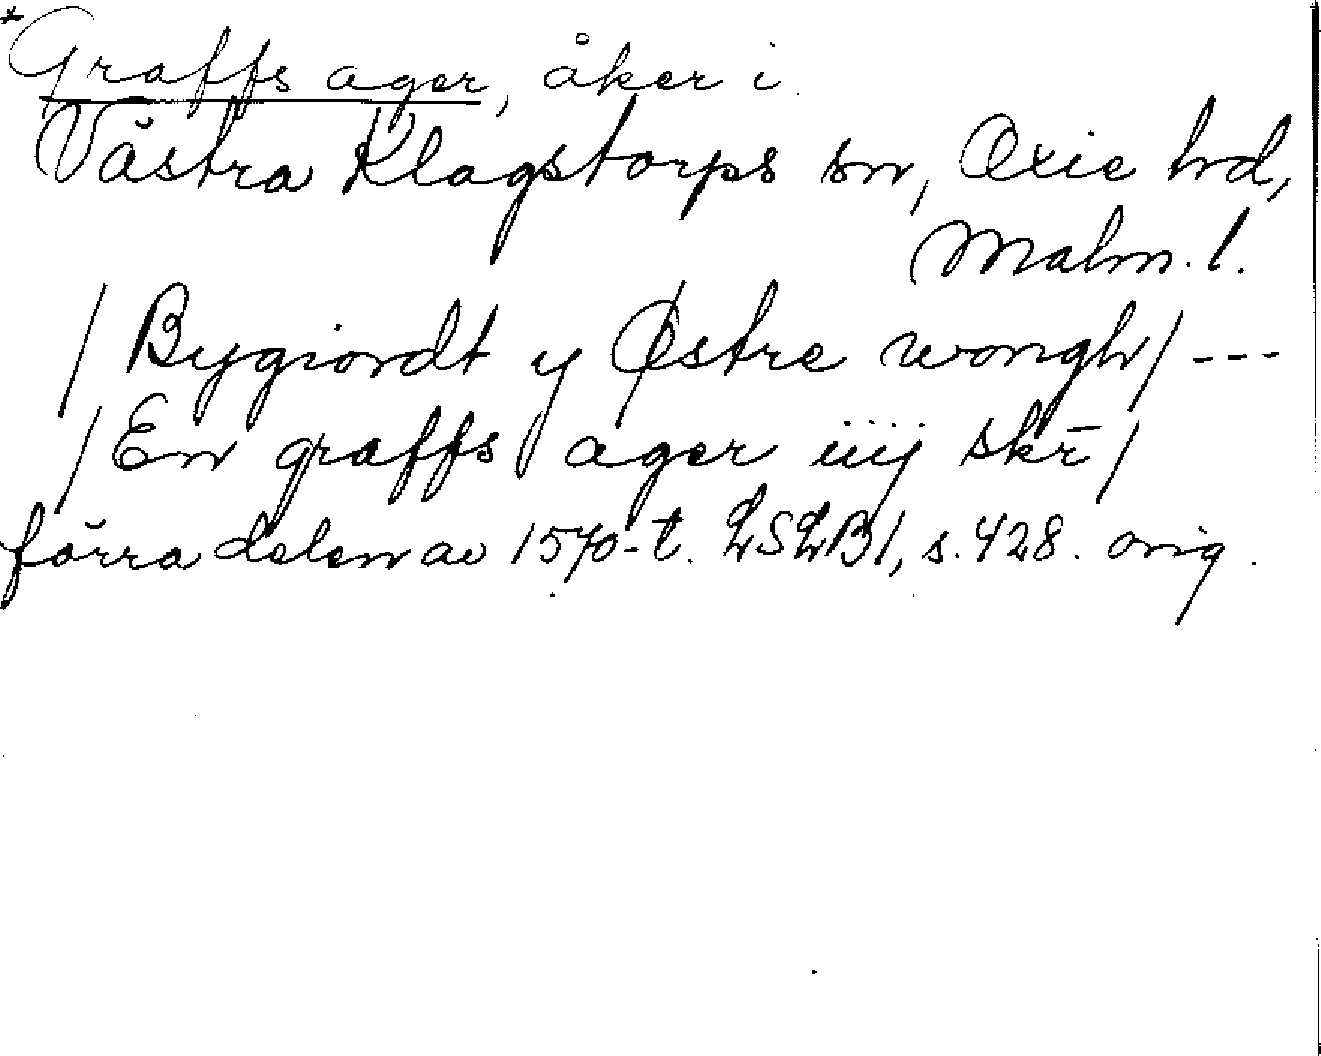 *Graffs ager, åker i
Västra Klagstorps sn, Oxie hd,
Malm. l.
/ Bygiordt y Østre wongh / ---
/ En graffs ager iiij skr̄ /
förra delen av 1570-t. LSLB1, s. 428. orig.